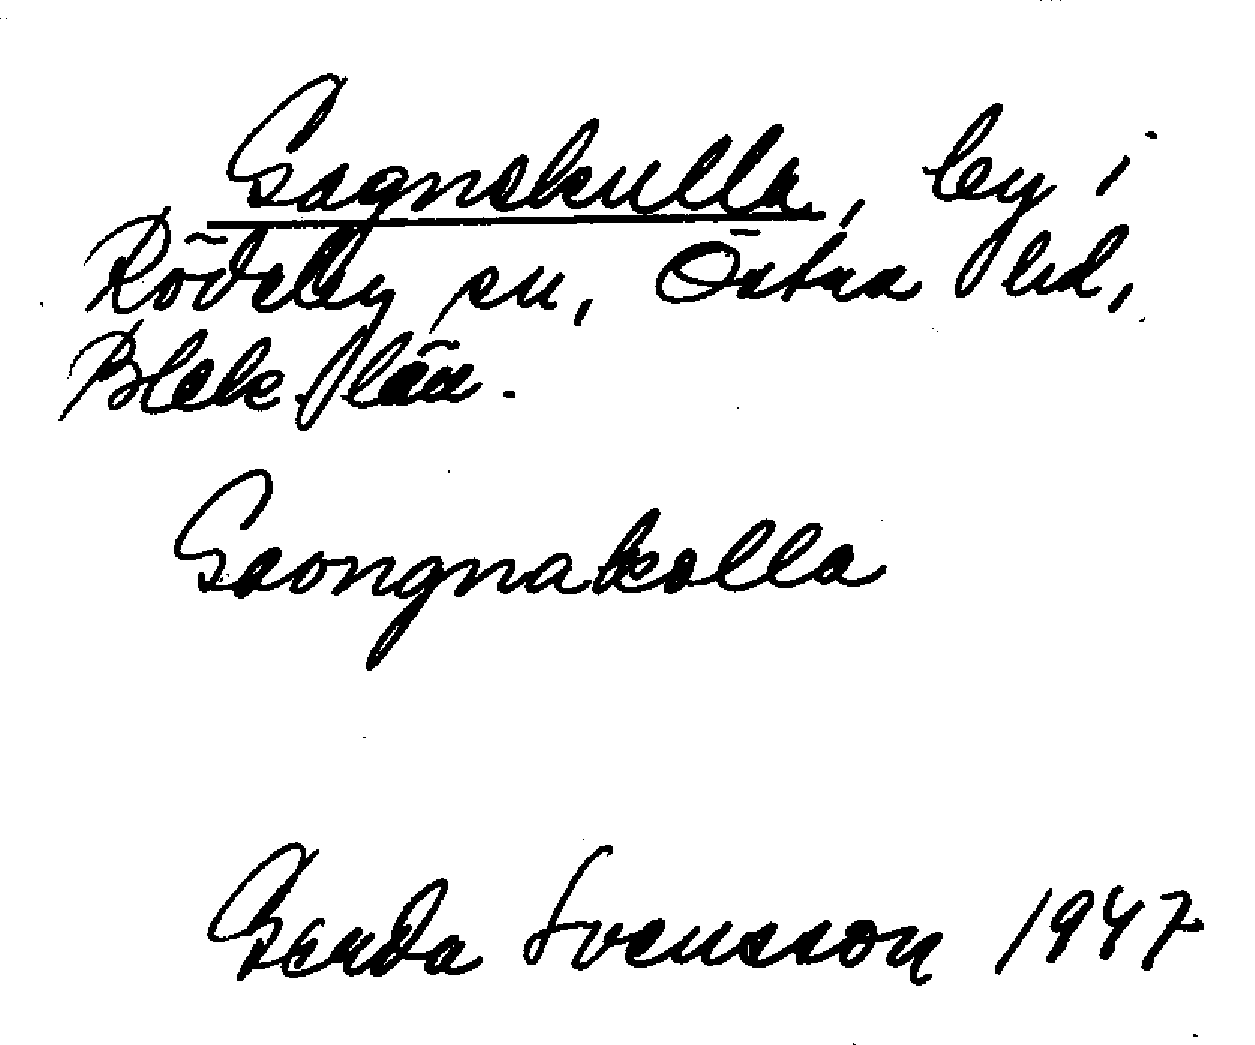 Gagnekulla, by i
Rödeby sn, Östra hd,
Blek. län.
Gaongnakolla
Gerda Svensson 1947